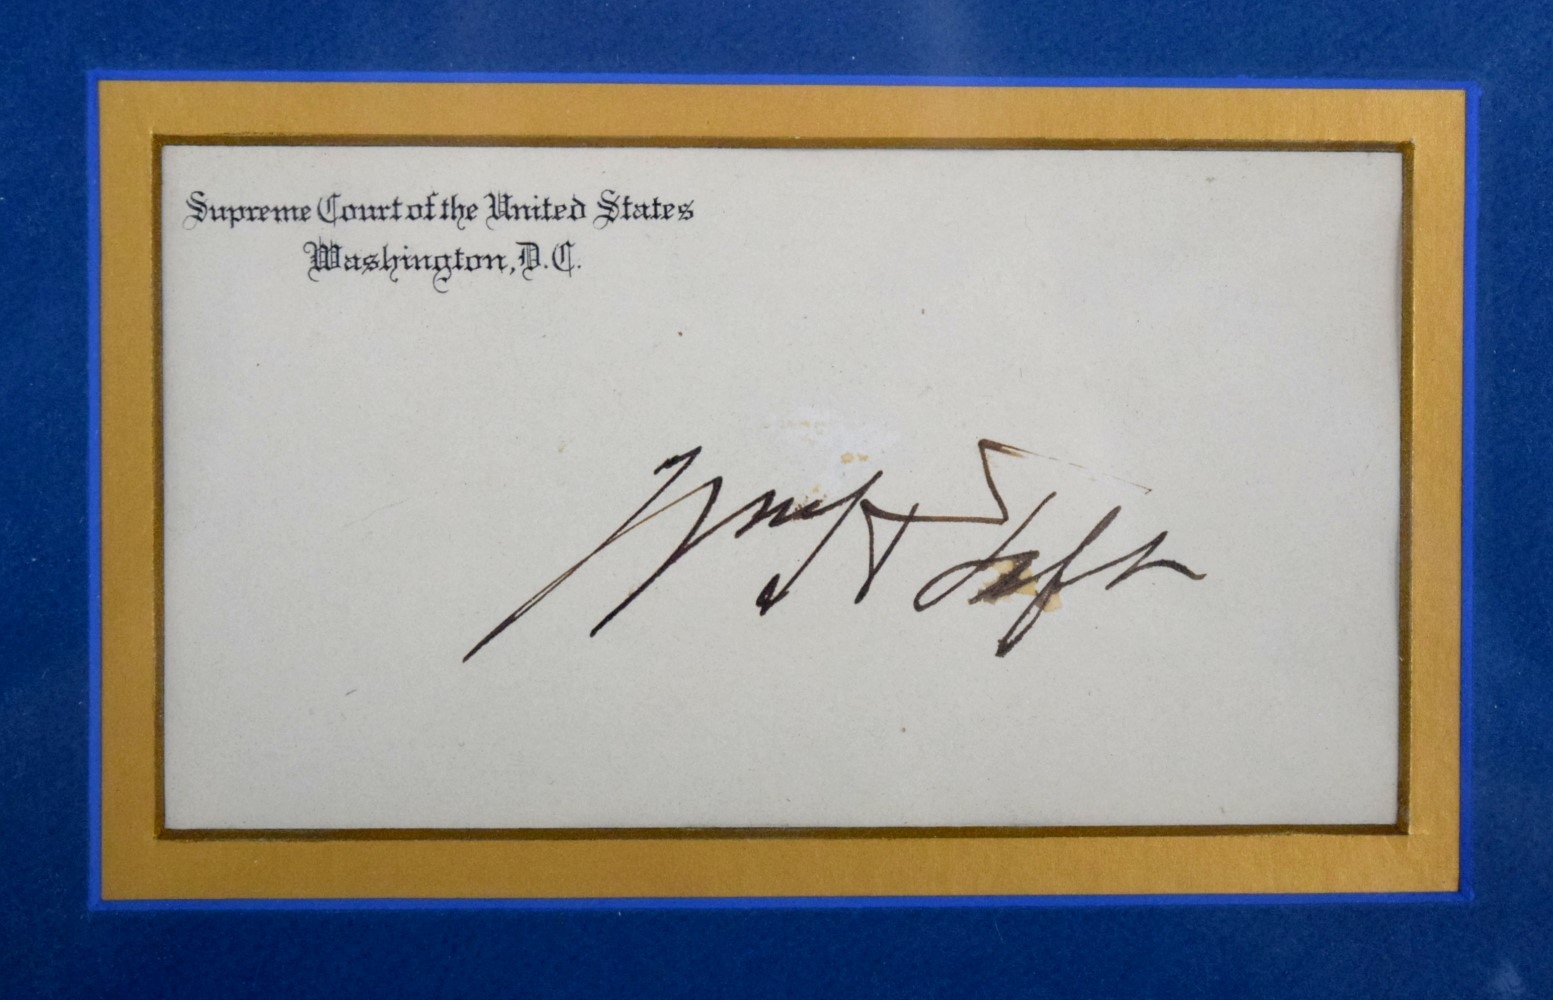 Supreme Court of the United States
Washington, D.C.
Wm H Taft